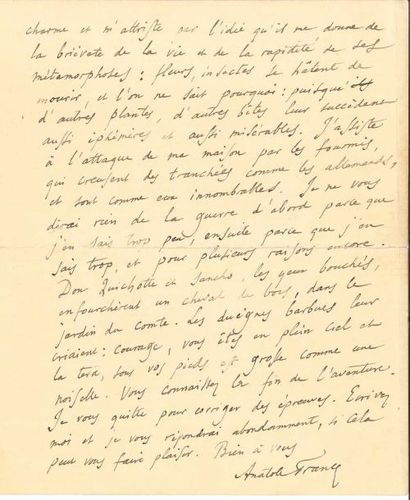 charme et m'attriste par l'idée qu'il me donne de
la brièveté de la vie et de la rapidité de ses
métamorphoses : fleurs, insectes se hâtent de
mourir, et l'on ne sait pourquoi : puisque
d'autres plantes, d'autres bêtes leur succèdent
aussi éphémères et aussi misérables. J'assiste
à l'attaque de ma maison par les fourmis,
qui creusent des tranchées comme les allemands,
et sont comme eux innombrables. Je ne vous
dirai rien de la guerre d'abord parce que
j'en sais trop peu, ensuite parce que j'en
sais trop, et pour plusieurs raisons encore.
Don Quichotte et Sancho, les yeux bouchés,
enfourchèrent un cheval de bois, dans le
jardin du comte. Les duègnes barbues leur
criaient : courage, vous êtes en plein ciel et
la terre, sous vos pieds est grosse comme une
noisette. Vous connaissez la fin de l'aventure.
Je vous quitte pour corriger des épreuves. Ecrivez
moi et je vous répondrai abondamment, si cela
peut vous faire plaisir. Bien à vous
Anatole France